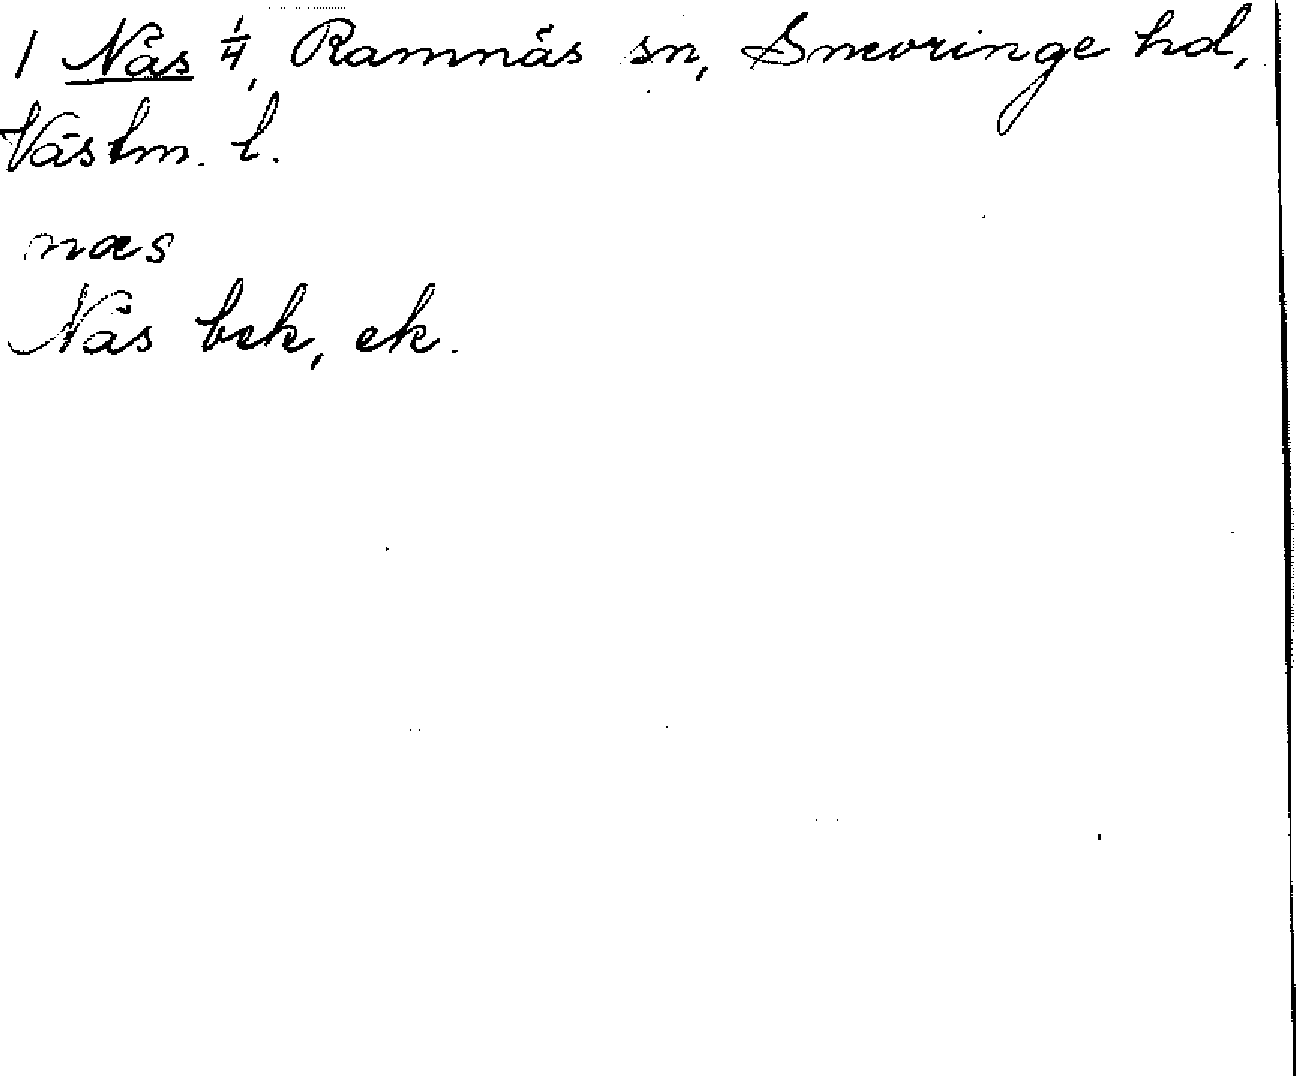 1 Näs 1/4, Ramnäs sn, Snevringe hd,
Västm. l.
næs
Näs bek, ek.